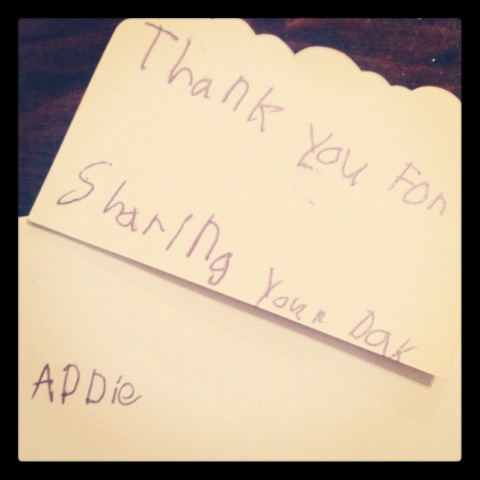 Thank You For
Sharing Your Dak
ADDie